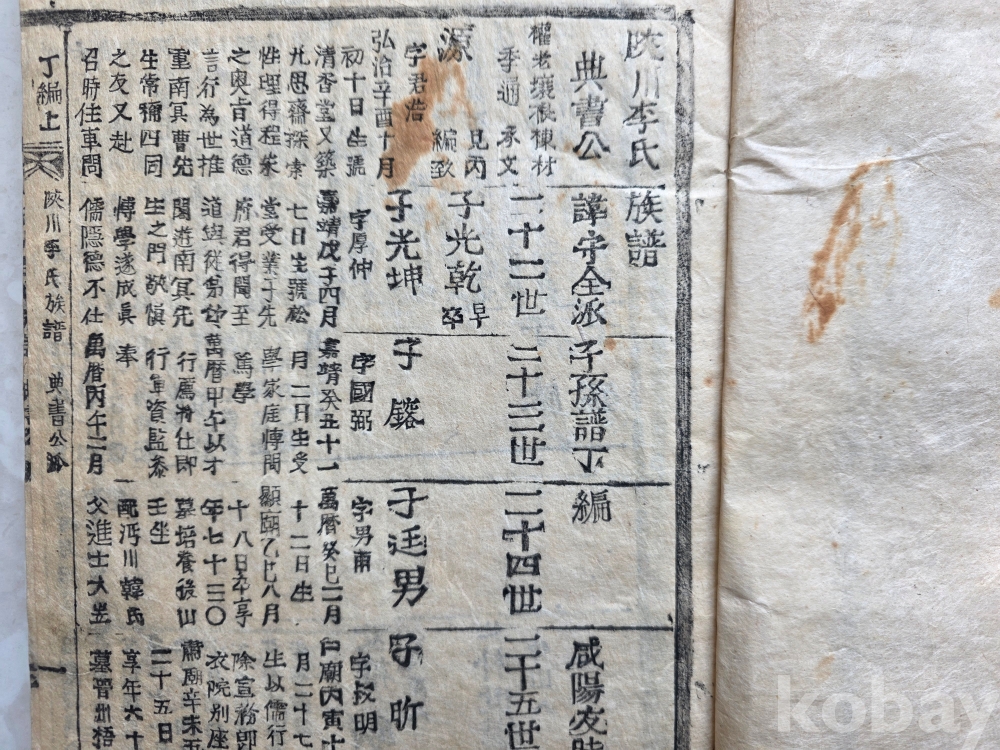 陜川李氏族譜
典書公諱守全派子孫譜丁編
咸陽
權老壤根棟材
季通 承文
源 見丙編
字君浩
弘治辛酉十月
初十日生號
清香堂又築
九思齋探索
性理得程朱
之奧旨道德
言行為世推
重南冥曹先
生常稱四同
之友又赴
召時任車問
二十二世
子光乾 早卒
子光坤
字厚仲
嘉靖戊子四月
七日生號松
堂受業于先
府君得聞至
道與從
遊南冥先
生之門敬愼
博學遂成眞
儒隱德不仕
二十三世
子
字國弼
嘉靖癸丑十一
月二日生受
學家庭傳聞
篤學
萬曆甲午以才
行薦將仕郎
行軍資監參
奉
萬曆丙午二月
二十四世
子廷男
字男甫
萬曆癸巳二月
十二日生
顯廟乙巳八月
十八日卒享
年七十三○
墓培養後山
壬坐
配沔川韓氏
父進士大
二十五世
子昕
字明
廟丙寅十
月二十七
生以儒行
除宣務郎
衣院別座
肅廟辛未五
二十五日
享年六十
墓晉州梧
丁編上
陜川李氏族譜 典書公派
一
kobay